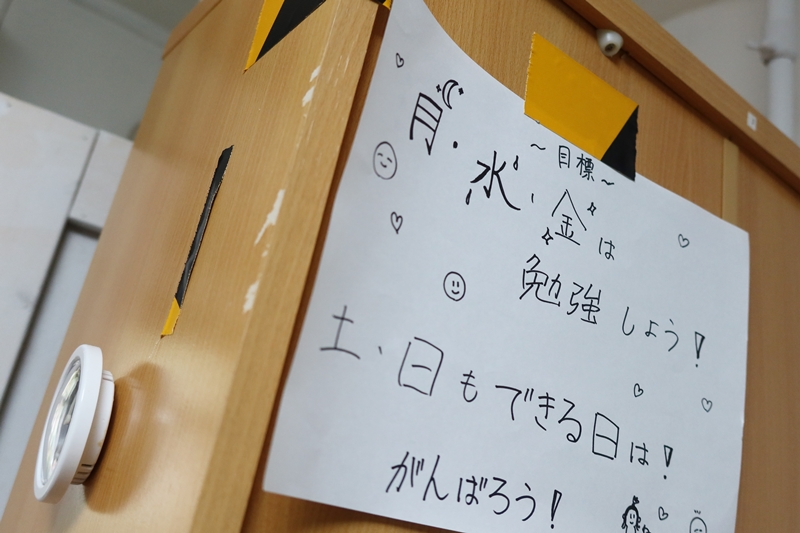 〜目標〜
月・水・金は
勉強しよう!
土、日もできる日は!
がんばろう!